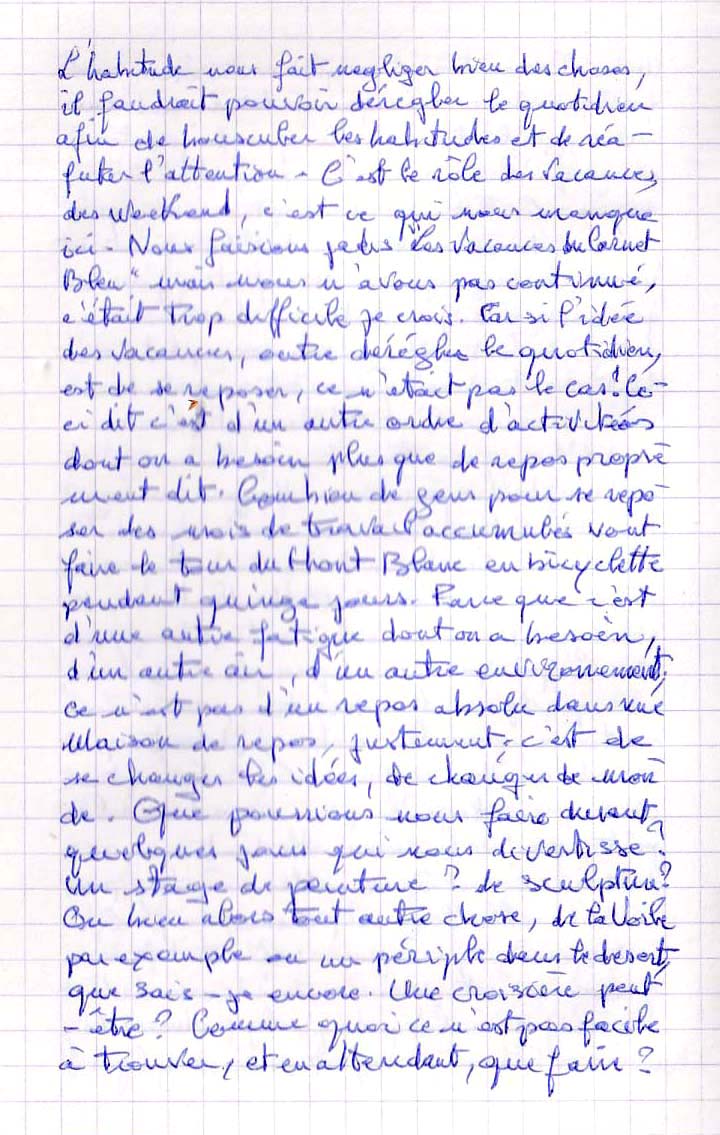 L'habitude nous fait negliger bien des choses,
il faudrait pouvoir dérégler le quotidien
afin de bousculer les habitudes et de réa-
futer l'attention - C'est le rôle des vacances,
des Weekend, c'est ce qui nous manque
ici - Nous faisions jadis "Les Vacances du Carnet
Bleu" mais nous n'avons pas continué,
c'était trop difficile je crois. Car si l'idée
des vacances, outre dérégler le quotidien,
est de se reposer, ce n'était pas le cas! Ce-
ci dit c'est d'un autre ordre d'activités
dont on a besoin plus que de repos propre
ment dit. Combien de gens pour se repo-
ser des mois de travail accumulés vont
faire le tour du Mont Blanc en bicyclette
pendant quinze jours. Parce que c'est
d'une autre fatigue dont on a besoin,
d'un autre air, d'un autre environement,
ce n'est pas d'un repos absolu dans une
Maison de repos, justement, c'est de
se changer les idées, de changer de mon
de. Que pourrions nous faire durant
quelques jours qui nous divertisse?
Un stage de peinture? de sculpture?
Ou bien alors tout autre chose, de la Voile
par exemple ou un périple dans le desert,
que sais-je encore. Une croisière peut
-être? Comme quoi ce n'est pas facile
à trouver, et en attendant, que faire?